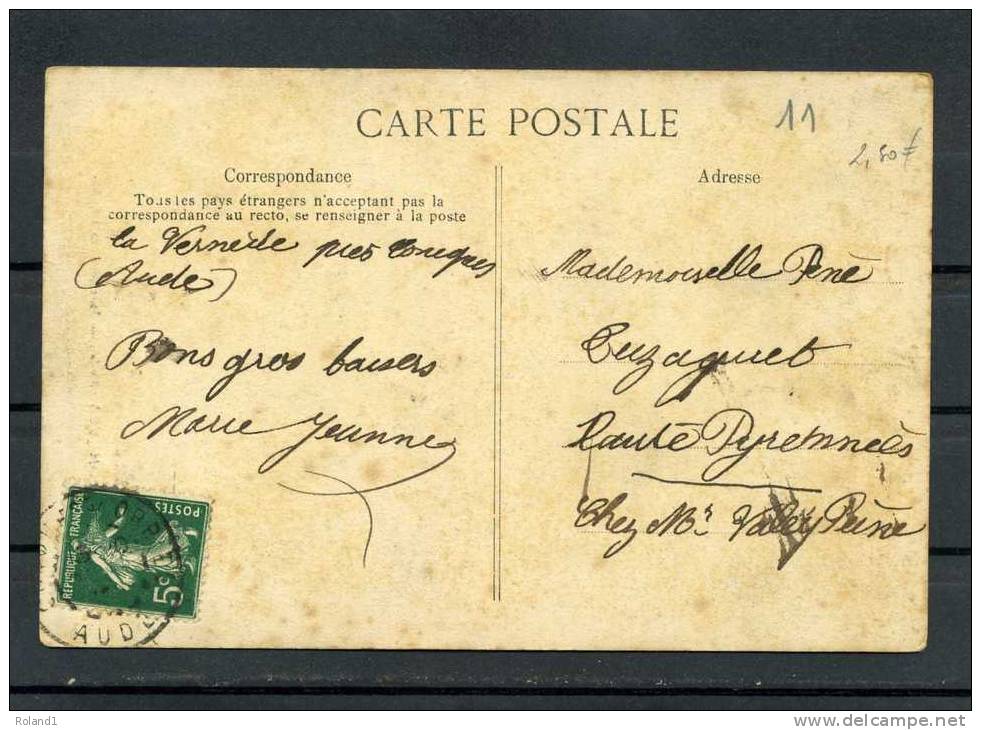 CARTE POSTALE
11
2,50€
Correspondance
Tous les pays étrangers n'acceptant pas la
correspondance au recto, se renseigner à la poste
la Vernède près Conques
(Aude)
Bons gros baisers
Marie Jeanne
Adresse
Mademoiselle Péne
Tuzaguet
Haute Pyrennées
Chez Mr Valery Péne
POSTES
REPUBLIQUE FRANÇAISE
5c
AUDE
Roland1
www.delcampe.net